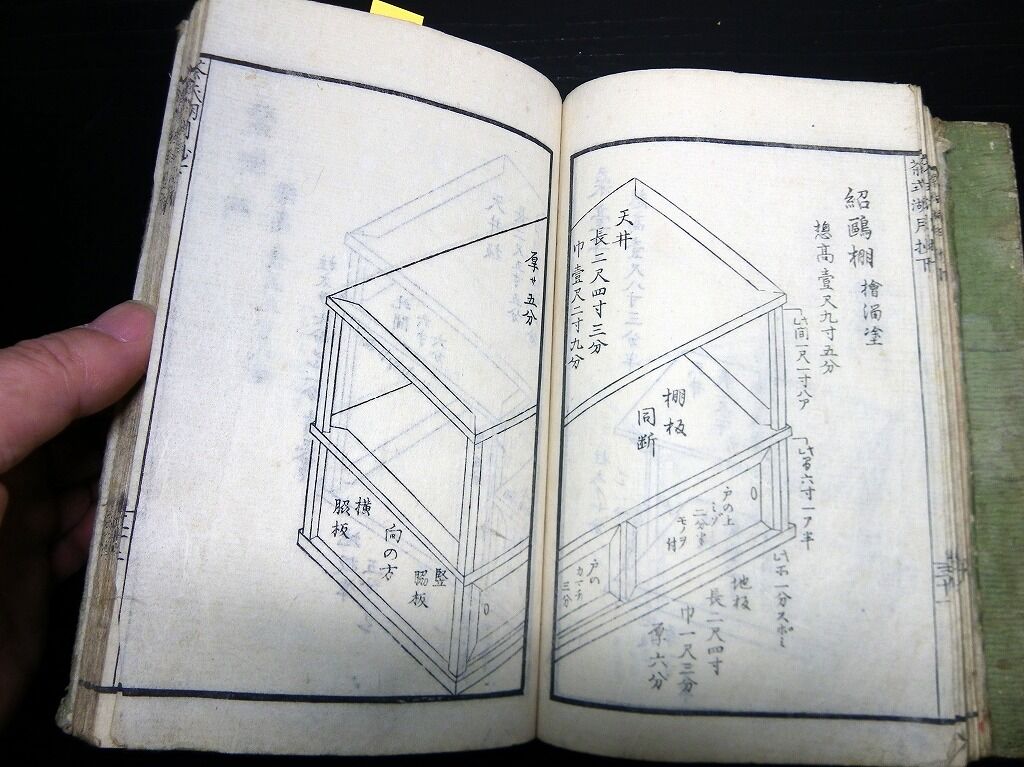 紹鷗棚 檜溜塗
惣高壹尺九寸五分
此間一尺一寸八ア
此間六寸一ア半
天井
長二尺四寸三分
巾壹尺二寸九分
厚サ五分
棚板
同断
戸の上
ミゾ
二分半
モヲヲ
付
戸の
カマチ
三分
地板
長二尺四寸
巾一尺三分
厚六分
横
脇板
向の方
竪
脇板
茶式湖月抄下